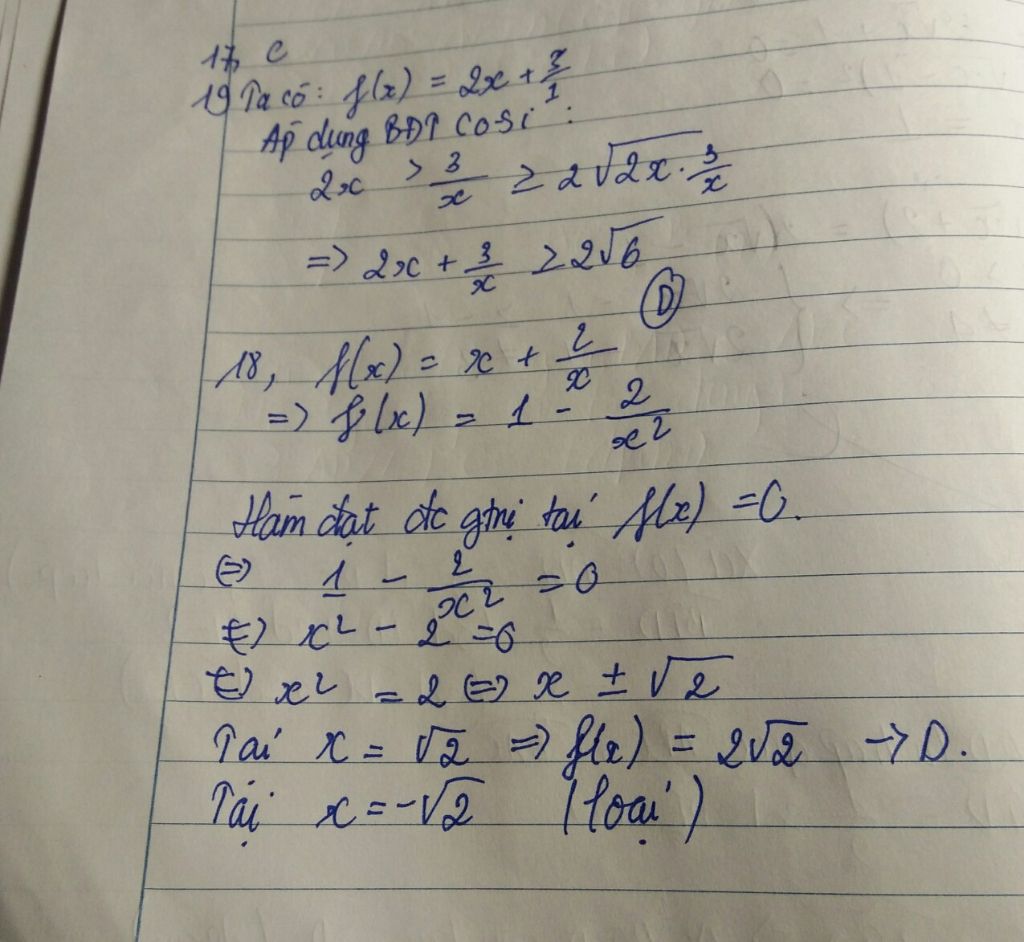 17, C
19 Ta có: f(x) = 2x + 3/1
Áp dụng BĐT cosi:
2x > 3/x ≥ 2√(2x · 3/x)
=> 2x + 3/x ≥ 2√6
D
18, f(x) = x + 2/x
=> f(x) = 1 - 2/x²
Hàm đạt đc gtrị tại f(x) = 0.
<=> 1 - 2/x² = 0
<=> x² - 2 = 0
<=> x² = 2 <=> x ± √2
Tại x = √2 => f(x) = 2√2 → D.
Tại x = -√2 (loại)